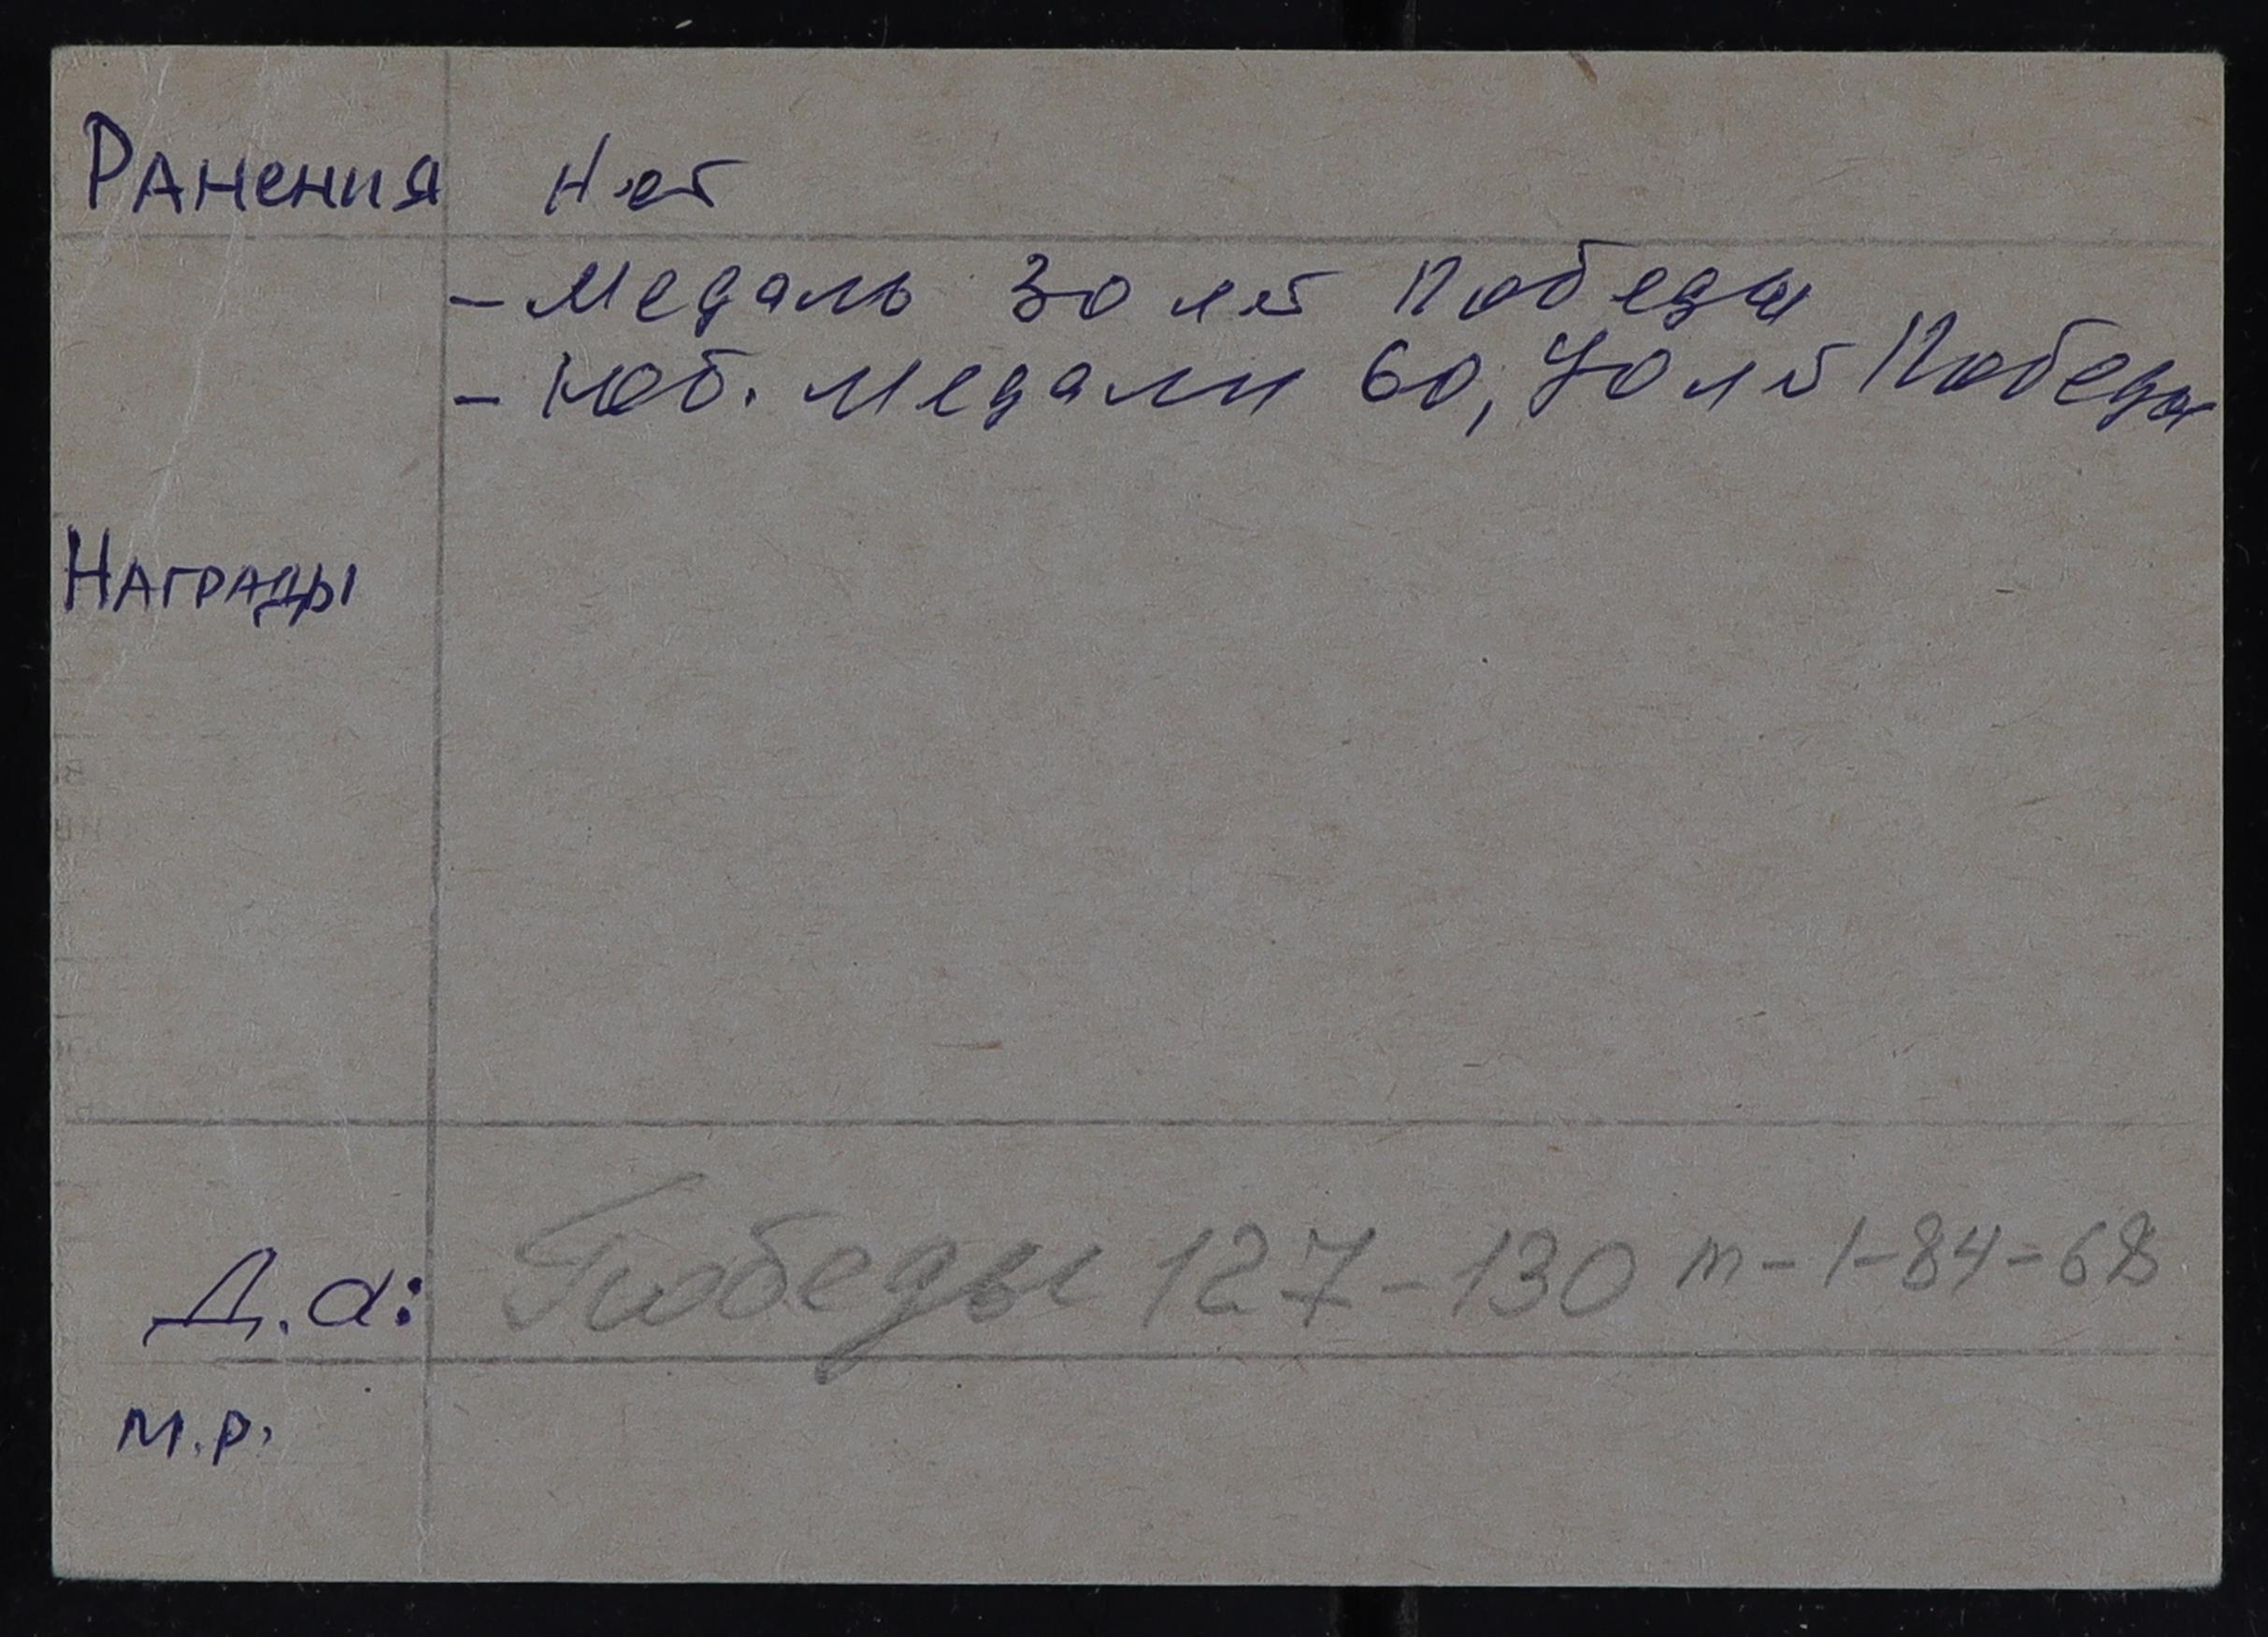 Ранения Нет
- Медаль 30 лет Победы
- Юб. медали 60, 70 лет Победы
Награды
Д.а: Победы 127-130 т-1-84-68
м.р.